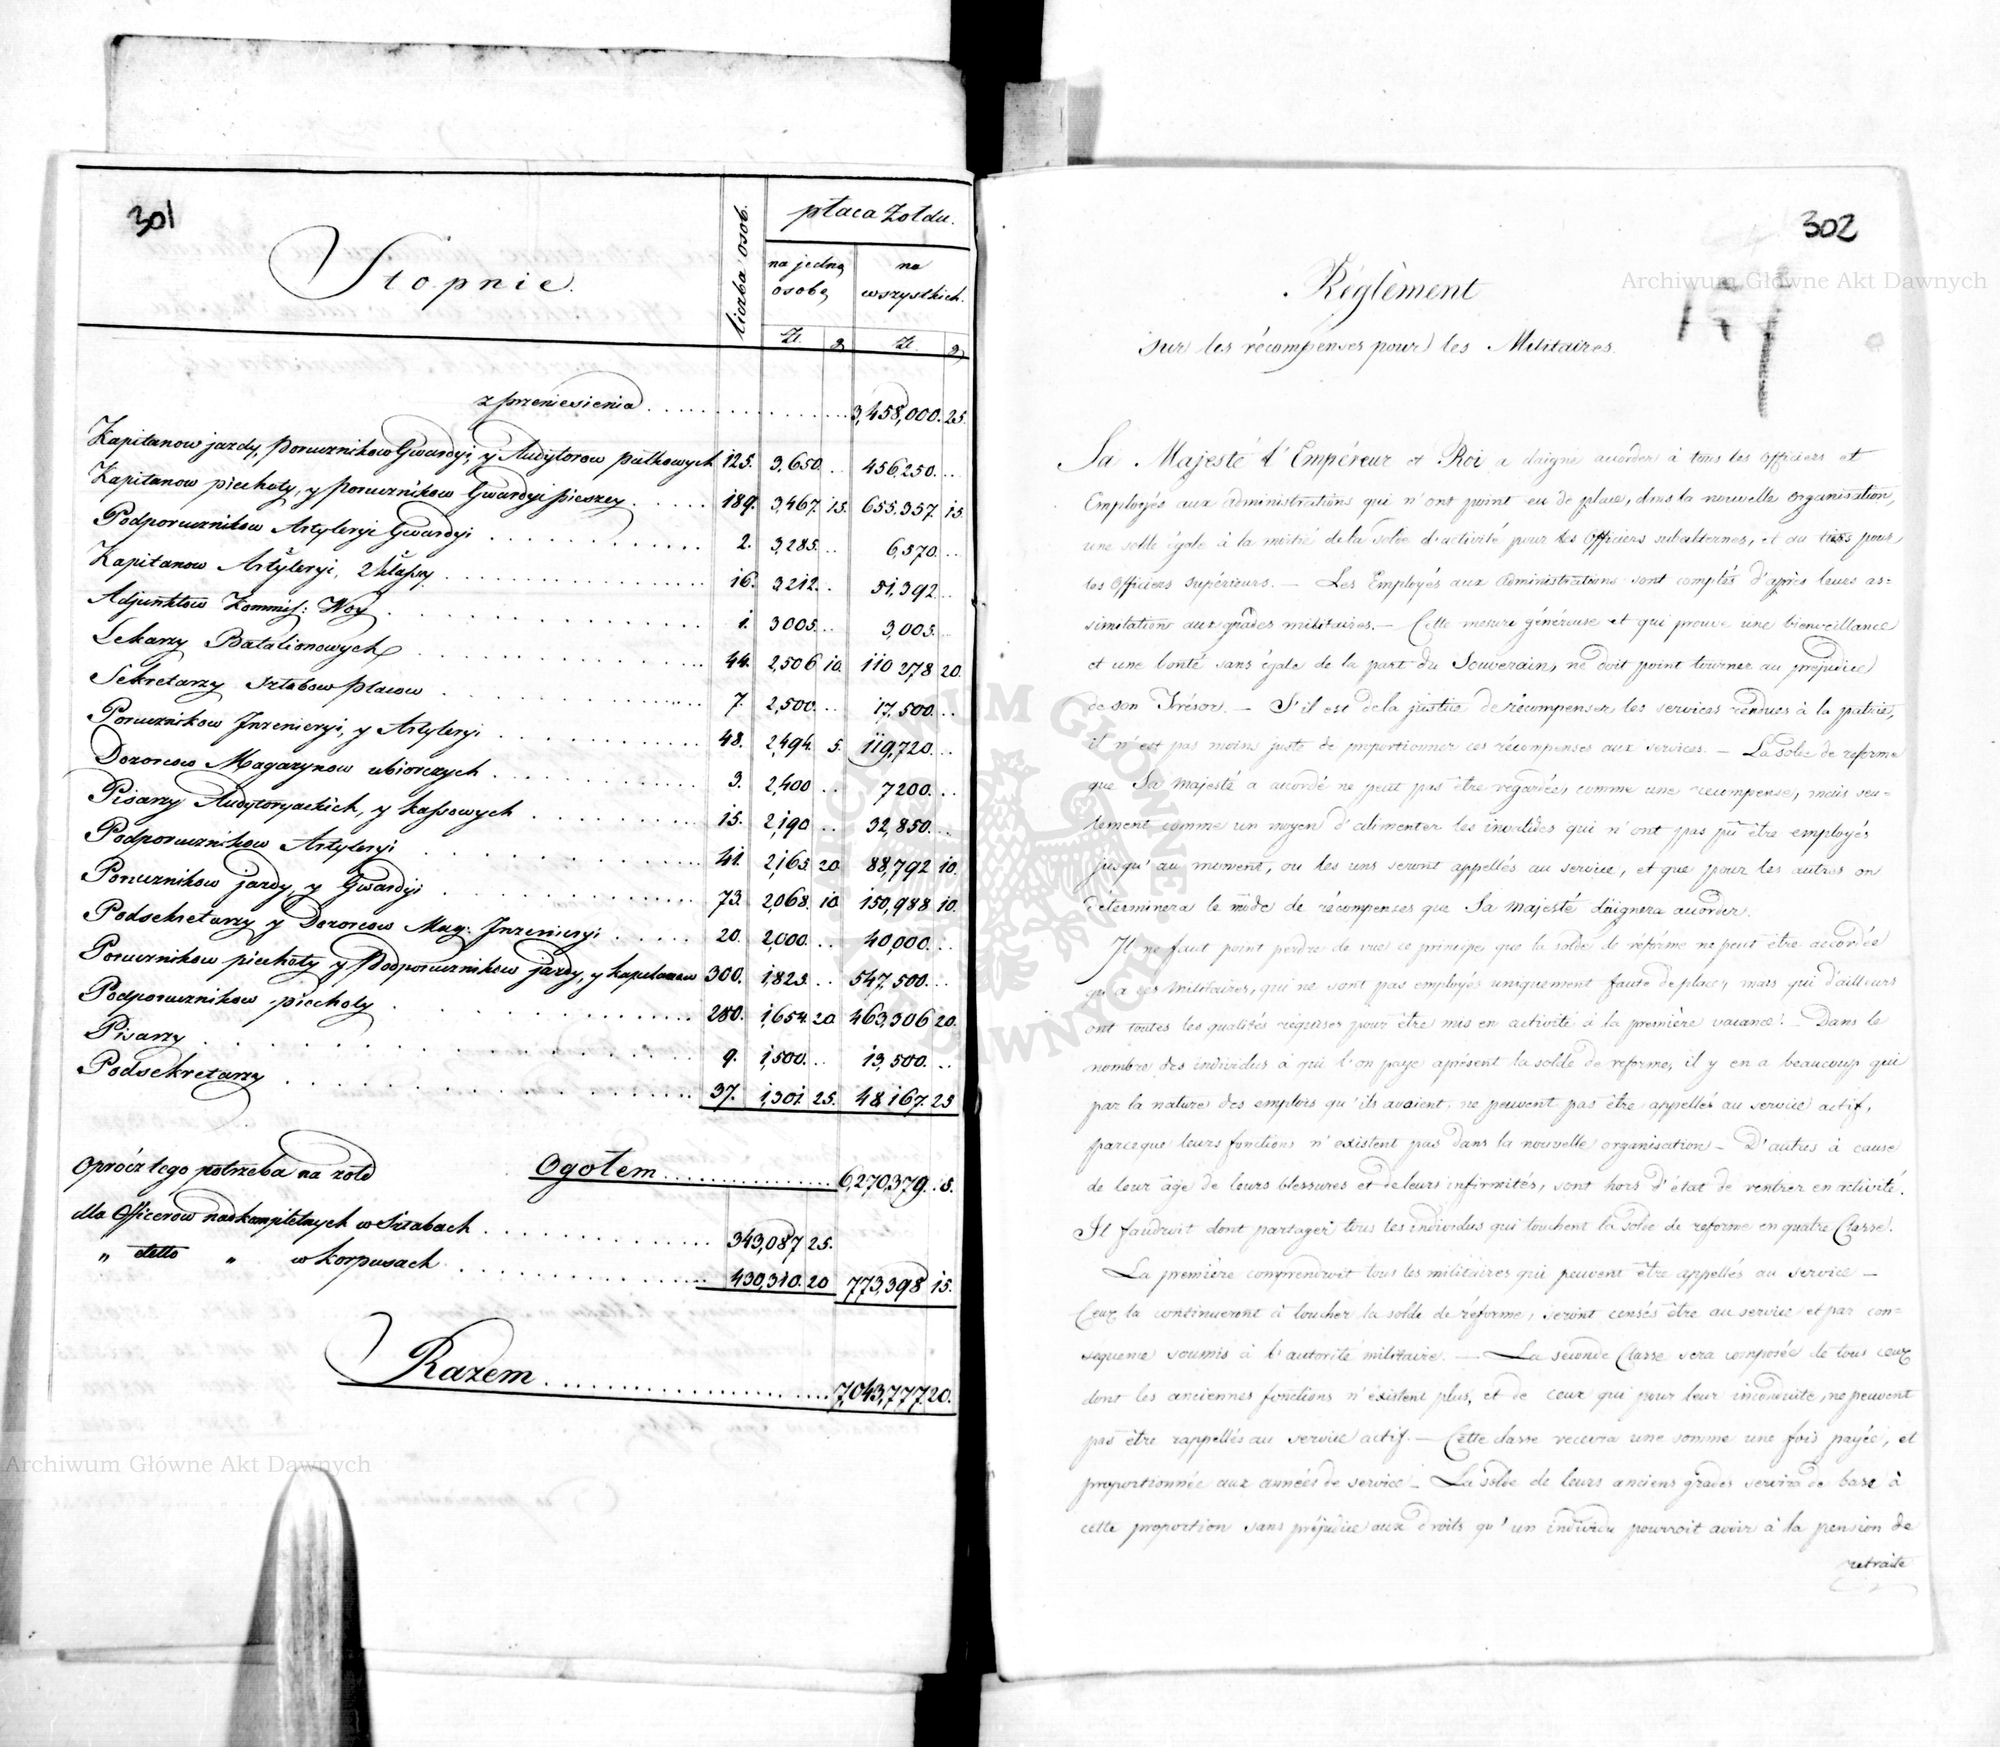 301
Stopnie.
liczba osob.
płaca żołdu.
na jedną osobę
na wszystkich.
Zł. g Zł. g
z przeniesienia 3,458,000. 25.
Kapitanow jazdy, Poruznikow Gwardyi, y Audytorow pułkowych 125. 3,650. .. 456,250. ..
Kapitanow piechoty, y Poruznikow Gwardyi pieszey 189. 3,467. 15. 655,357. 15.
Podporucznikow Artyleryi Gwardyi 2. 3,285. .. 6,570. ..
Kapitanow Artyleryi, 2 klassy 16. 3212. .. 51,392. ..
Adjunktow Kommiss: Woy 1. 3005. .. 3,005. ..
Lekarzy Batalionowych 44. 2,506 10. 110 278 20.
Sekretarzy Sztabow placow 7. 2,500. .. 17,500. ..
Poruznikow Inzenieryi, y Artyleryi 48. 2,494. 5. 119,720. ..
Dozorcow Magazynow ubiorczych 3. 2,400 .. 7200. ..
Pisarzy Audytoryackich, y kassowych 15. 2,190 .. 32,850. ..
Podporucznikow Artyleryi 41. 2,165. 20. 88,792 10.
Poruznikow jazdy, y Gwardyi 73. 2,068. 10. 150,988 10.
Podsekretarzy y Dozorcow Mag: Inzenieryi 20. 2,000. .. 40,000. ..
Poruznikow piechoty y Podporucznikow jazdy, y kapelanow 300. 1,825. .. 547,500. ..
Podporucznikow piechoty 280. 1,654. 20. 463,306 20.
Pisarzy 9. 1,500. .. 13,500. ..
Podsekretarzy 37. 1,301. 25. 48 167. 25
Ogołem 6,270,379. 5.
Oprócz tego potrzeba na zołd
dla Officerow nadkompletnych w Sztabach 343,087 25.
" detto " w korpusach 430,310. 20 773,398 15.
Razem 7,043,777. 20.
Archiwum Główne Akt Dawnych
302
Archiwum Główne Akt Dawnych
Réglèment
sur les récompenses pour les Militaires.
Sa Majesté l'Empéreur et Roi a daigné accorder à tous les officiers et
Employés aux administrations qui n'ont point eu de place, dans la nouvelle organisation,
une solde égale à la moitié de la solde d'activité pour les Officiers subalternes, et au tiers pour
les Officiers supérieurs. — Les Employés aux administrations sont comptés d'après leurs as=
similations aux grades militaires. — Cette mesure généreuse et qui prouve une bienveillance
et une bonté sans égale de la part du Souverain, ne doit point tourner au préjudice
de son Trésor. — S'il est de la justice de récompenser les services rendues à la patrie,
il n'est pas moins juste de proportionner ces récompenses aux services. — La solde de reforme
que Sa Majesté a accordé ne peut pas être regardée, comme une recompense, mais seu=
lement comme un moyen d'alimenter les invalides qui n'ont pas pû être employés
jusqu'au moment, ou les uns seront appellés au service, et que pour les autres on
déterminera le mode de récompenses que Sa Majesté daignera accorder.
Il ne faut point perdre de vue ce principe que la solde de réforme ne peut être accordée
qu'à ces militaires, qui ne sont pas employés uniquement faute de place, mais qui d'ailleurs
ont toutes les qualités réquises pour être mis en activité à la première vacance. Dans le
nombre des individus à qui l'on paye aprésent la solde de reforme, il y en a beaucoup qui
par la nature des emplois qu'ils avaient, ne peuvent pas être appellés au service actif,
parceque leurs fonctions n'existent pas dans la nouvelle organisation — D'autres à cause
de leur age de leurs blessures et de leurs infirmités, sont hors d'état de rentrer en activité.
Il faudroit dont partager tous les individus qui touchent la solde de reforme en quatre Classe.
La première comprendroit tous les militaires qui peuvent être appellés au service —
Ceux la continueront à toucher la solde de réforme, seront censés être au service et par con=
sequence soumis à l'autorité militaire. — La séconde Classe sera composée de tous ceux
dont les anciennes fonctions n'éxistent plus, et de ceux qui pour leur inconduite, ne peuvent
pas être rappellés au service actif. — Cette classe recevra une somme une fois payée, et
proportionnée aux années de service — La solde de leurs anciens grades servira de base à
cette proportion sans préjudice aux droits qu'un individu pourroit avoir à la pension de
retraite